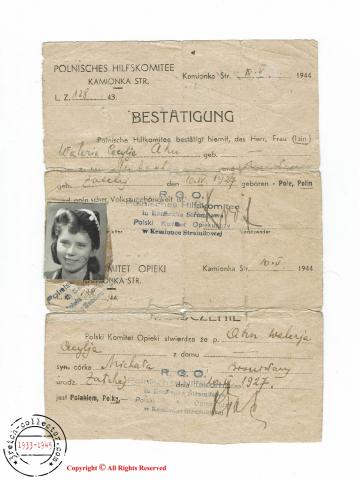 POLNISCHES HILFSKOMITEE
KAMIONKA STR.
Kamionka Str. 10.V. 1944
L. Z. 128 43.
BESTÄTIGUNG
Polnische Hilfkomitee bestätigt hiemit, des Herr, Frau (Frln)
Waleria Cecylja Ahn geb.
geb. den 10.IV 1927 geboren - Pole, Polin
und polnischer Volkszugehörigkeit ist.
R. G. O.
Polnisches Hilfskomitee
in Kamionka Strumiłowa
Polski Komitet Opiekuńczy
w Kamionce Strumiłowej
KOMITET OPIEKI
KAMIONKA STR.
Kamionka Str. 10.V. 1944
44.
Polski Komitet Opieki stwierdza że p. Ahn Walerja
Cecylja z domu
syn, córka Michała
urodz. dnia 1927.
R. G. O.
Polnisches Hilfskomitee
in Kamionka Strumiłowa
jest Polakiem, Polką.
w Kamionce Strumiłowej
3reich-collector.com
1933-1945
Copyright © All Rights Reserved